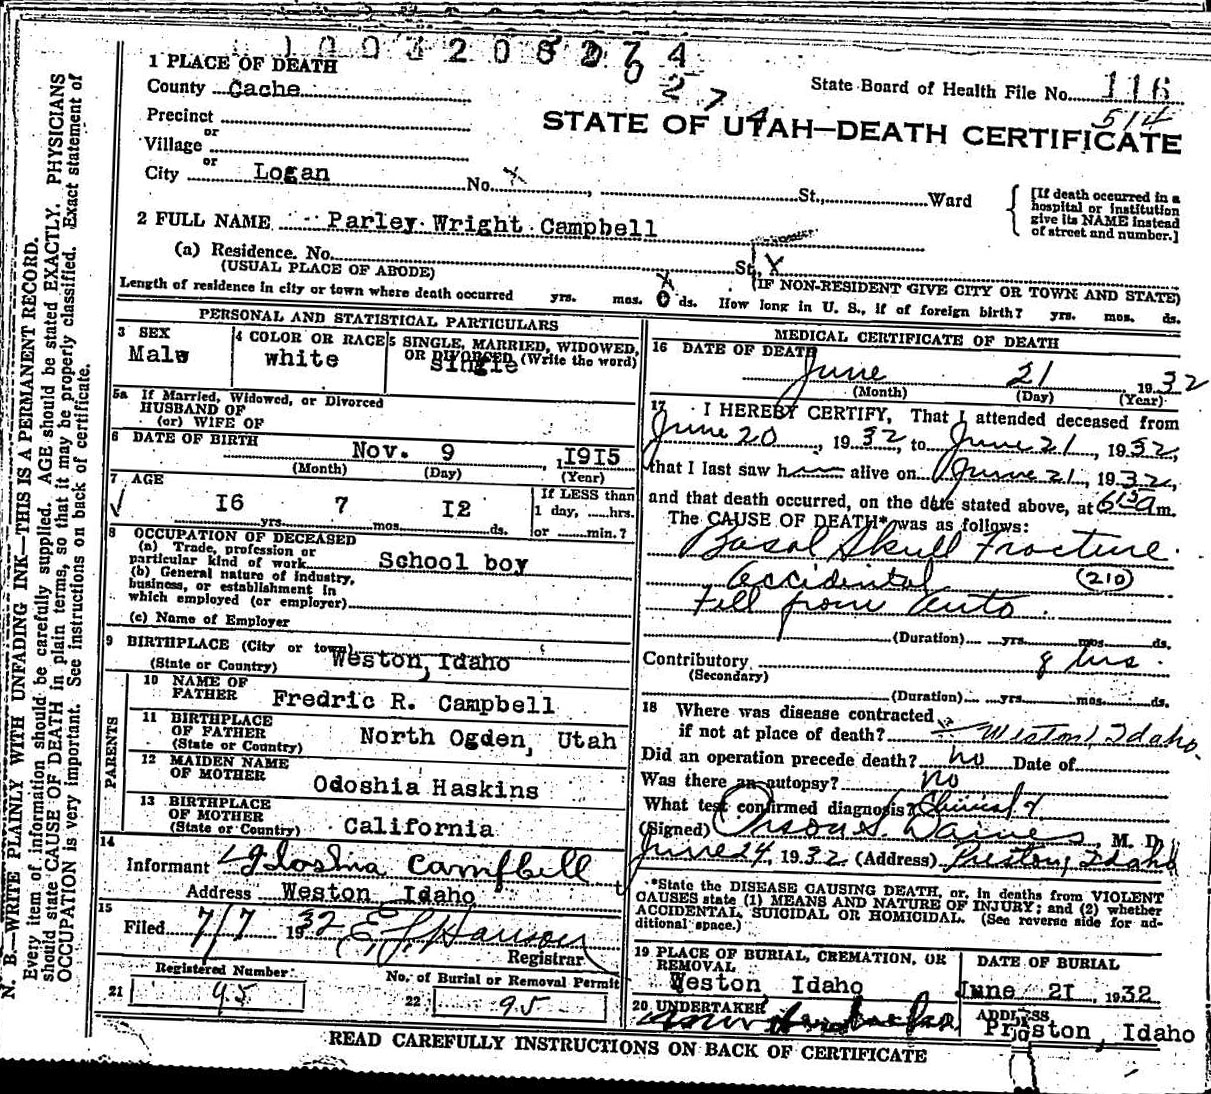 1003208274
0274
1 PLACE OF DEATH
State Board of Health File No. 116
County Cache
514
Precinct
STATE OF UTAH—DEATH CERTIFICATE
or
Village
or
City Logan No. X St., Ward
[If death occurred in a
hospital or institution
give its NAME instead
of street and number.]
2 FULL NAME Parley Wright Campbell
(a) Residence. No. St., X
(USUAL PLACE OF ABODE) (IF NON-RESIDENT GIVE CITY OR TOWN AND STATE)
Length of residence in city or town where death occurred yrs. mos. 0 ds. How long in U. S., if of foreign birth? yrs. mos. ds.
PERSONAL AND STATISTICAL PARTICULARS
3 SEX Male
4 COLOR OR RACE white
5 SINGLE, MARRIED, WIDOWED,
OR DIVORCED (Write the word)
single
5a If Married, Widowed, or Divorced
HUSBAND OF
(or) WIFE OF
6 DATE OF BIRTH Nov. 9 1915
(Month) (Day) (Year)
7 AGE
16 yrs. 7 mos. 12 ds.
If LESS than
1 day, hrs.
or min.?
8 OCCUPATION OF DECEASED
(a) Trade, profession or
particular kind of work School boy
(b) General nature of industry,
business, or establishment in
which employed (or employer)
(c) Name of Employer
9 BIRTHPLACE (City or town) Weston, Idaho
(State or Country)
PARENTS
10 NAME OF
FATHER Fredric R. Campbell
11 BIRTHPLACE
OF FATHER North Ogden, Utah
(State or Country)
12 MAIDEN NAME
OF MOTHER Odoshia Haskins
13 BIRTHPLACE
OF MOTHER
(State or Country) California
14
Informant Campbell
Address Weston Idaho
15
Filed 7/7 1932
Registrar
Registered Number
21 95
No. of Burial or Removal Permit
22 95
MEDICAL CERTIFICATE OF DEATH
16 DATE OF DEATH
June 21 1932
(Month) (Day) (Year)
17 I HEREBY CERTIFY, That I attended deceased from
June 20, 1932, to June 21, 1932,
that I last saw h alive on June 21, 1932,
and that death occurred, on the date stated above, at 6 a m.
The CAUSE OF DEATH* was as follows:
Basal Skull Fracture
Accidental (210)
Fell from Auto
(Duration) yrs. mos. ds.
Contributory 8 hrs.
(Secondary)
(Duration) yrs. mos. ds.
18 Where was disease contracted
if not at place of death? Weston, Idaho
Did an operation precede death? no Date of
Was there an autopsy? no
What test confirmed diagnosis? Clinical
(Signed) Orson S. Daines, M. D.
June 24, 1932 (Address) Preston, Idaho
*State the DISEASE CAUSING DEATH, or, in deaths from VIOLENT
CAUSES state (1) MEANS AND NATURE OF INJURY; and (2) whether
ACCIDENTAL, SUICIDAL OR HOMICIDAL. (See reverse side for ad-
ditional space.)
19 PLACE OF BURIAL, CREMATION, OR
REMOVAL
Weston Idaho
DATE OF BURIAL
June 21, 1932
20 UNDERTAKER
ADDRESS
Preston, Idaho
READ CAREFULLY INSTRUCTIONS ON BACK OF CERTIFICATE
N. B.—WRITE PLAINLY WITH UNFADING INK—THIS IS A PERMANENT RECORD.
Every item of information should be carefully supplied. AGE should be stated EXACTLY. PHYSICIANS
should state CAUSE OF DEATH in plain terms, so that it may be properly classified. Exact statement of
OCCUPATION is very important. See instructions on back of certificate.